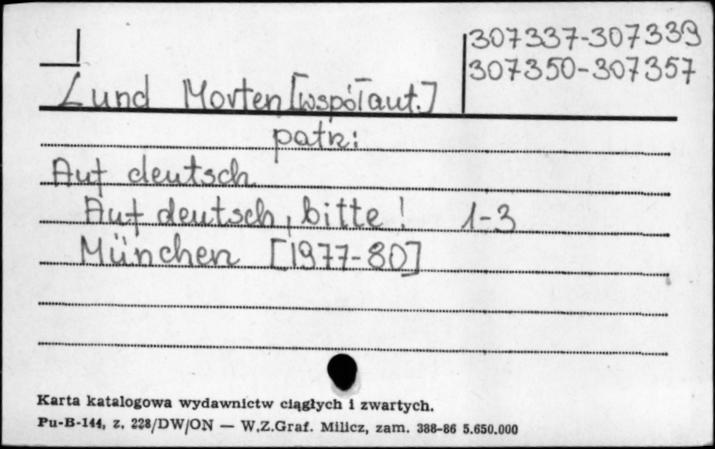 307337-307339
307350-307357
Lund Morten [współaut.]
patrz:
Auf deutsch
Auf deutsch, bitte! 1-3
München [1977-80]
Karta katalogowa wydawnictw ciągłych i zwartych.
Pu-B-144, z. 228/DW/ON — W.Z.Graf. Milicz, zam. 388-86 5.650.000